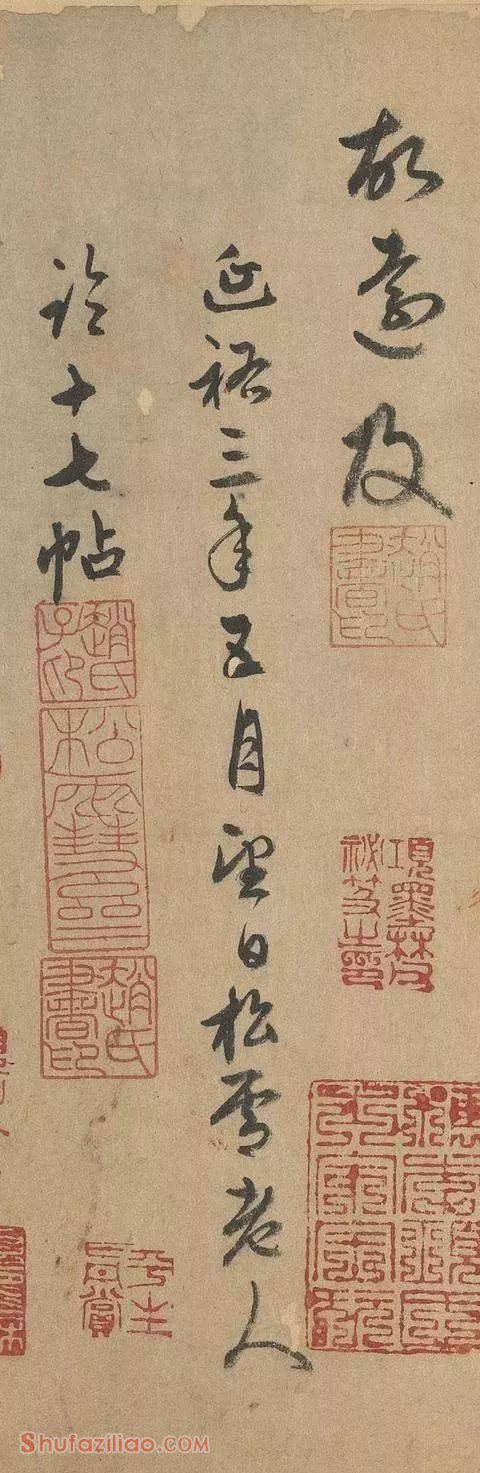 故遠及
趙氏書印
項墨林父祕笈之印
延祐三年五月望日松雪老人
臨十七帖
趙氏子昂
松雪齋
趙氏書印
平生真賞
Shufaziliao.COM